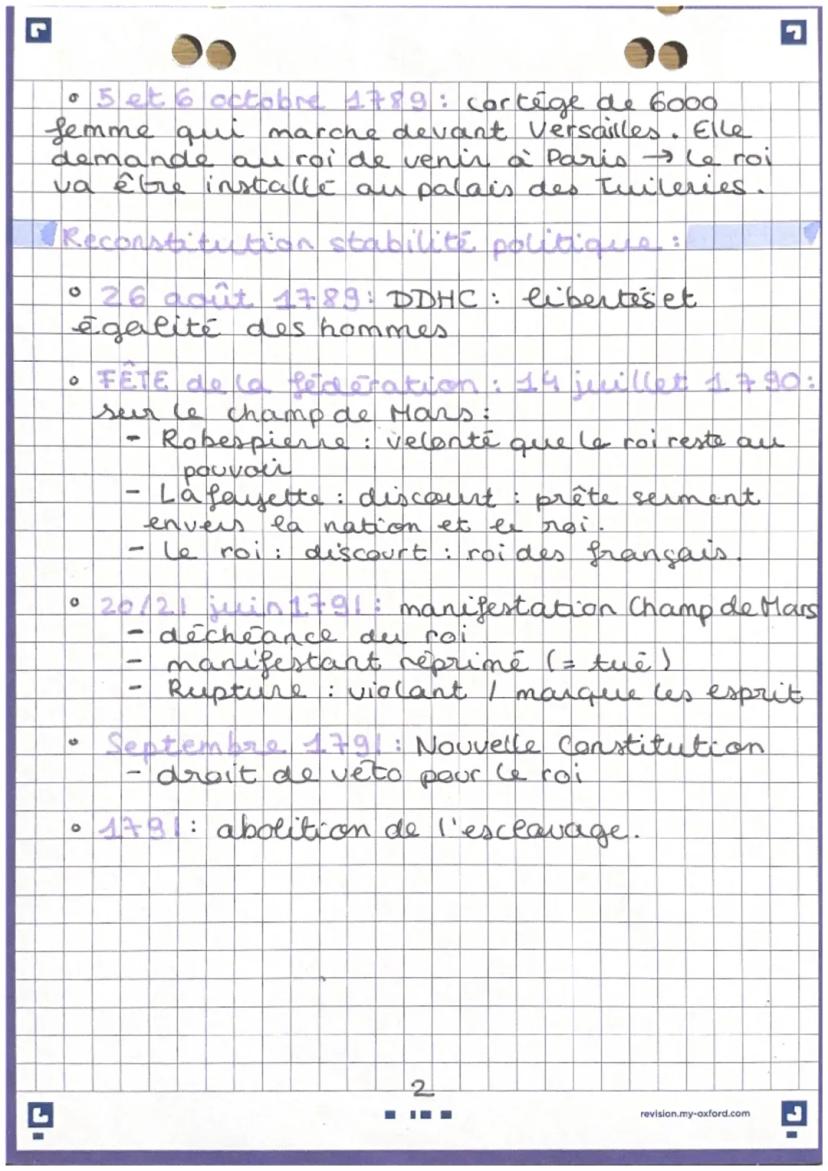 • 5 et 6 octobre 1789 : cortège de 6000
femme qui marche devant Versailles. Elle
demande au roi de venir à Paris → le roi
va être installé au palais des Tuileries.
Reconstitution stabilité politique :
• 26 août 1789 : DDHC : libertés et
égalité des hommes
• FÊTE de la fédération : 14 juillet 1790 :
sur le champ de Mars :
- Robespierre : velonté que le roi reste au
pouvoir
- Lafayette : discourt : prête serment
envers la nation et le roi.
- le roi : discourt : roi des français.
• 20/21 juin 1791 : manifestation Champ de Mars
- déchéance du roi
- manifestant réprimé (= tué)
- Rupture : violant / marque les esprit
• Septembre 1791 : Nouvelle Constitution
- droit de véto pour le roi
• 1791 : abolition de l'esclavage.
2
revision.my-oxford.com